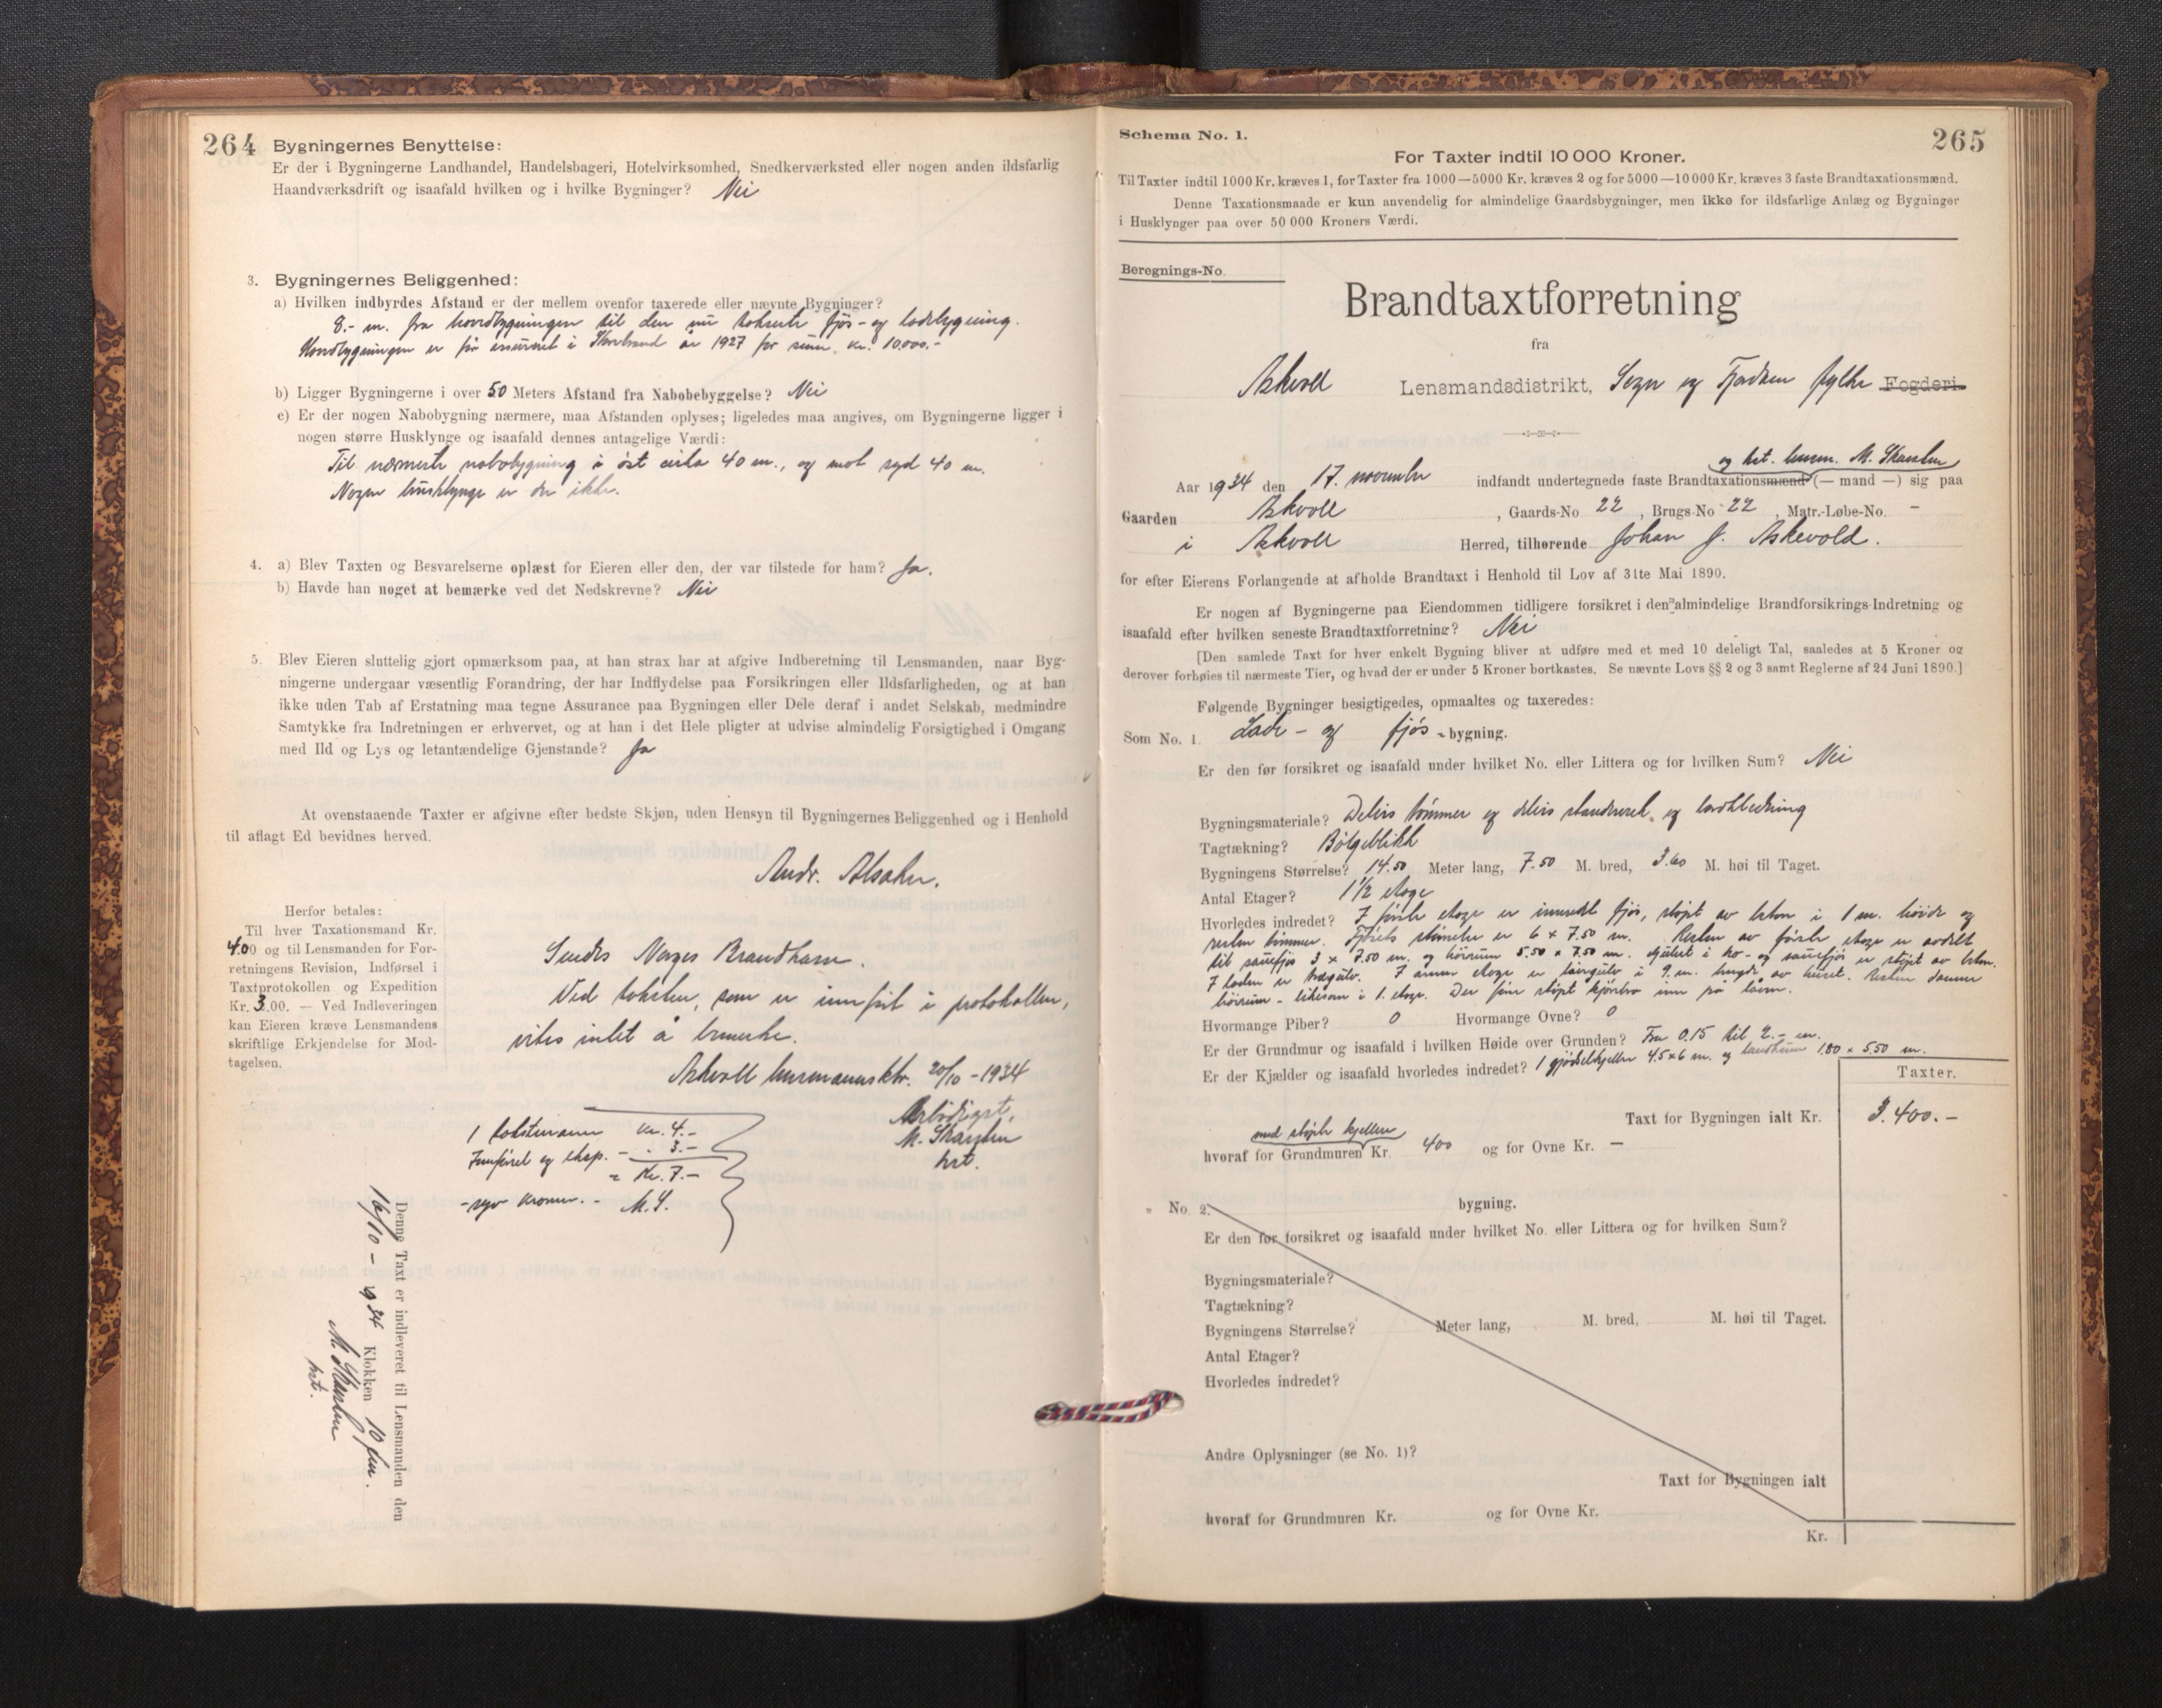 264
Bygningernes Benyttelse:
Er der i Bygningerne Landhandel, Handelsbageri, Hotelvirksomhed, Snedkerværksted eller nogen anden ildsfarlig
Haandværksdrift og isaafald hvilken og i hvilke Bygninger? Nei
3. Bygningernes Beliggenhed:
a) Hvilken indbyrdes Afstand er der mellem ovenfor taxerede eller nævnte Bygninger?
8.- m. fra hovedbygningen til den nu takserte fjøs- og ladebygning.
Hovedbygningen er før assurert i Storbrand år 1927 for sum kr. 10.000.-
b) Ligger Bygningerne i over 50 Meters Afstand fra Nabobebyggelse? Nei
c) Er der nogen Nabobygning nærmere, maa Afstanden oplyses; ligeledes maa angives, om Bygningerne ligger i
nogen større Husklynge og isaafald dennes antagelige Værdi:
Til nærmeste nabobygning i øst cirka 40 m., og mot syd 40 m.
Nogen husklynge er der ikke.
4. a) Blev Taxten og Besvarelserne oplæst for Eieren eller den, der var tilstede for ham? Ja.
b) Havde han noget at bemærke ved det Nedskrevne? Nei
5. Blev Eieren sluttelig gjort opmærksom paa, at han strax har at afgive Indberetning til Lensmanden, naar Byg-
ningerne undergaar væsentlig Forandring, der har Indflydelse paa Forsikringen eller Ildsfarligheden, og at han
ikke uden Tab af Erstatning maa tegne Assurance paa Bygningen eller Dele deraf i andet Selskab, medmindre
Samtykke fra Indretningen er erhvervet, og at han i det Hele pligter at udvise almindelig Forsigtighed i Omgang
med Ild og Lys og letantændelige Gjenstande? Ja
At ovenstaaende Taxter er afgivne efter bedste Skjøn, uden Hensyn til Bygningernes Beliggenhed og i Henhold
til aflagt Ed bevidnes herved.
Andr. Alsaker.
Herfor betales:
Til hver Taxationsmand Kr.
4.00 og til Lensmanden for For-
retningens Revision, Indførsel i
Taxtprotokollen og Expedition
Kr. 3.00. — Ved Indleveringen
kan Eieren kræve Lensmandens
skriftlige Erkjendelse for Mod-
tagelsen.
Sendes Norges Brandkasse.
Ved taksten, som er innført i protokollen,
vites intet å bemerke.
Askvoll lensmannsktr. 20/10 - 1934
Ærbødigst,
M. Skarsten
kst.
1 takstmann kr. 4.-
Innførsel og eksp. - " 3.-
= Kr. 7.-
- syv kroner. - M.S.
Denne Taxt er indleveret til Lensmanden den
16/10 - 1934 Klokken 10 fm.
M. Skarsten
kst.
Schema No. 1.
265
For Taxter indtil 10 000 Kroner.
Til Taxter indtil 1000 Kr. kræves 1, for Taxter fra 1000—5000 Kr. kræves 2 og for 5000—10000 Kr. kræves 3 faste Brandtaxationsmænd.
Denne Taxationsmaade er kun anvendelig for almindelige Gaardsbygninger, men ikke for ildsfarlige Anlæg og Bygninger
i Husklynger paa over 50 000 Kroners Værdi.
Beregnings-No.
Brandtaxtforretning
fra
Askvoll Lensmandsdistrikt, Sogn og Fjordane fylke Fogderi.
og kst. lensm. M. Skarsten
Aar 1934 den 17. november indfandt undertegnede faste Brandtaxationsmænd (— mand —) sig paa
Gaarden Askvoll, Gaards-No 22, Brugs-No 22, Matr.-Løbe-No. -
i Askvoll Herred, tilhørende Johan J. Askevold.
for efter Eierens Forlangende at afholde Brandtaxt i Henhold til Lov af 31te Mai 1890.
Er nogen af Bygningerne paa Eiendommen tidligere forsikret i den almindelige Brandforsikrings-Indretning og
isaafald efter hvilken seneste Brandtaxtforretning? Nei
[Den samlede Taxt for hver enkelt Bygning bliver at udføre med et med 10 deleligt Tal, saaledes at 5 Kroner og
derover forhøies til nærmeste Tier, og hvad der er under 5 Kroner bortkastes. Se nævnte Lovs §§ 2 og 3 samt Reglerne af 24 Juni 1890.]
Følgende Bygninger besigtigedes, opmaaltes og taxeredes:
Som No. 1 Lade- og fjøs-bygning.
Er den før forsikret og isaafald under hvilket No. eller Littera og for hvilken Sum? Nei
Bygningsmateriale? Delvis tømmer og delvis standverk, og bordkledning
Tagtækning? Bølgeblikk
Bygningens Størrelse? 14.50 Meter lang, 7.50 M. bred, 3.60 M. høi til Taget.
Antal Etager? 1 1/2 etage
Hvorledes indredet? I første etage er innredet fjøs, støpt av beton i 1 m. høide og
resten tømmer. Fjøsets størrelse er 6 x 7.50 m. Resten av første etage er avdelt
til sauefjøs 3 x 7.50 m. og høirum 5.50 x 7.50 m. Gulvet i ko- og sauefjøs er støpt av beton.
I laden er trægulv. I annen etage er låvegulv i 9. m. lengde av huset. Resten danner
høirum - likesom i 1. etage. Der fører støpt kjørebro inn på låven.
Hvormange Piber? 0 Hvormange Ovne? 0
Er der Grundmur og isaafald i hvilken Høide over Grunden? Fra 0.15 til 2.- m.
Er der Kjælder og isaafald hvorledes indredet? 1 gjødselkjeller 4.5x6 m. og landkum 1.80 x 5.50 m.
Taxter.
Taxt for Bygningen ialt Kr. 3.400.-
med støpte kjellere
hvoraf for Grundmuren Kr. 400 og for Ovne Kr. —
" No. 2. bygning.
Er den før forsikret og isaafald under hvilket No. eller Littera og for hvilken Sum?
Bygningsmateriale?
Tagtækning?
Bygningens Størrelse? Meter lang, M. bred, M. høi til Taget.
Antal Etager?
Hvorledes indredet?
Andre Oplysninger (se No. 1)?
Taxt for Bygningen ialt
hvoraf for Grundmuren Kr. og for Ovne Kr.
Kr.